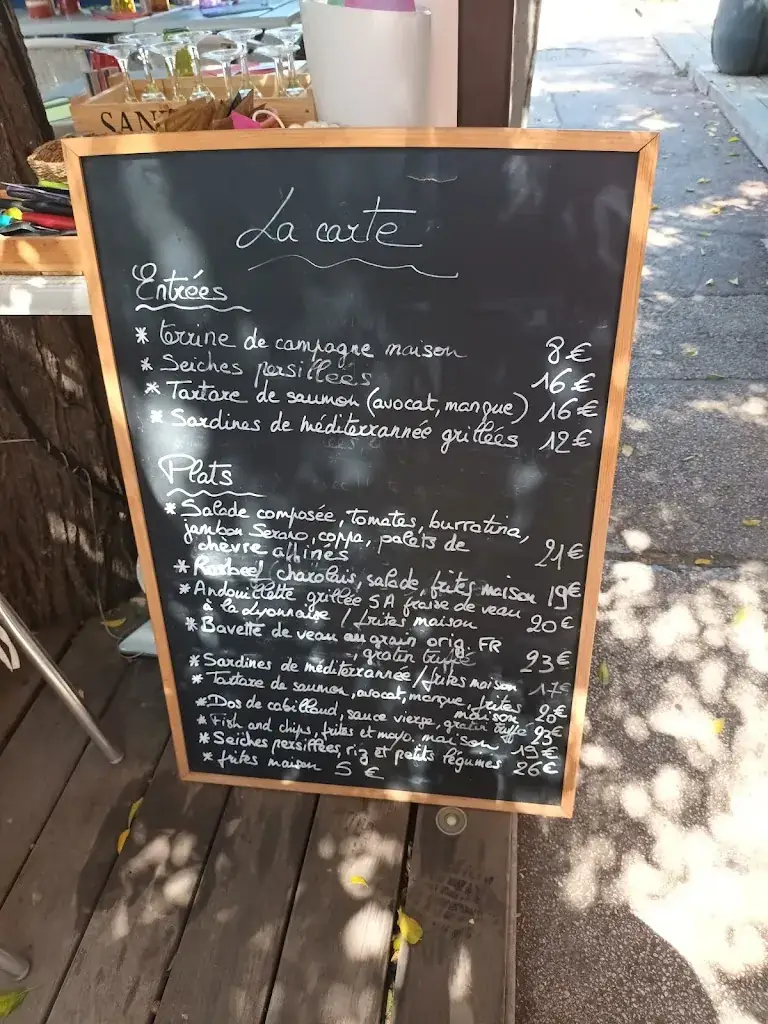 SAN
La carte
Entrées
* terrine de campagne maison 8€
* Seiches persillées 16€
* Tartare de saumon (avocat, mangue) 16€
* Sardines de méditerrannée grillées 12€
Plats
* Salade composée, tomates, burratina,
jambon Serano, coppa, palets de
chèvre affinés 21€
* Rosbeef charolais, salade, frites maison 19€
* Andouillette grillée 5A fraise de veau
à la Lyonnaise / frites maison 20€
* Bavette de veau au grain orig. FR
gratin truffé 23€
* Sardines de méditerrannée / frites maison 17€
* Tartare de saumon, avocat, mangue, frites
maison 20€
* Dos de cabillaud, sauce vierge, gratin truffé 23€
* Fish and chips, frites et mayo. maison 19€
* Seiches persillées riz et petits légumes 26€
* frites maison 5 €